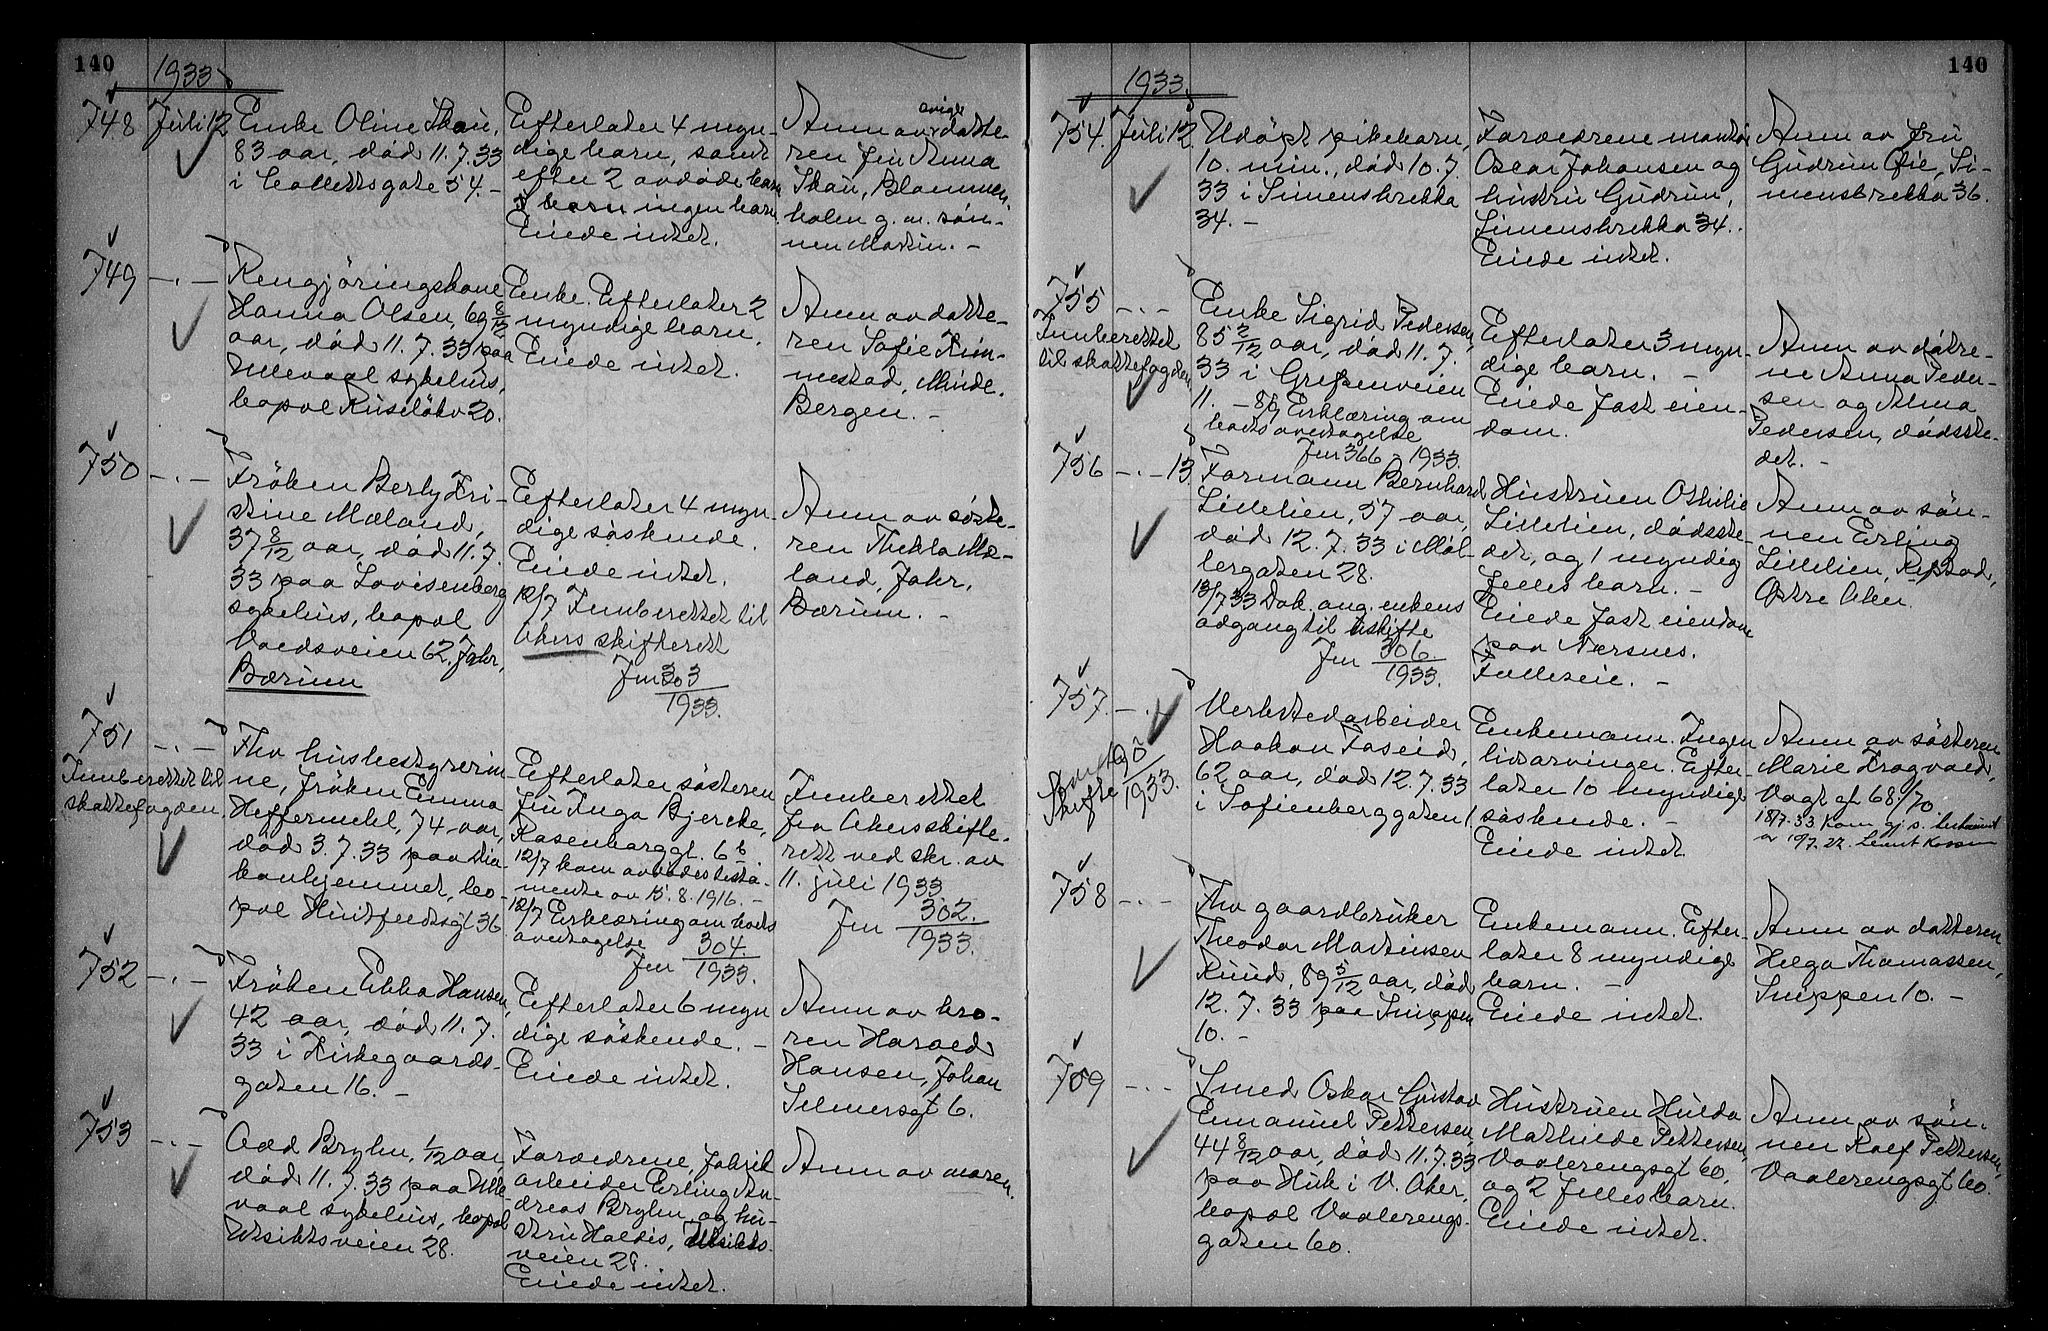 140
1933
748
Juli 12
Enke Oline Skau,
83 aar, död 11.7.33
i Colletts gate 54. -
Efterlater 4 myn-
dige barn, samt
efter 2 avdøde barn
barn ingen barn.
Eiede intet.
Anm av datte-
ren fru Anna
Skau, Blommen-
holm g. m. søn-
nen Martin. -
749 -.-
Rengjöringskone
Hanna Olsen, 69 8/12
aar, död 11.7.33 paa
Ullevaal sykehus,
bopæl Ruseløkv 20.
Enke. Efterlater 2
myndige barn.
Eiede intet.
Anm av datte-
ren Sofie
Minde,
Bergen. -
750 -.-
Fröken Berly Kri-
stine Mæland,
37 8/12 aar, död 11.7.
33 paa Lovisenberg
sykehus, bopæl
62, Jahr,
Bærum
Efterlater 4 myn-
dige søskende.
Eiede intet.
12/7 Innberettet til
Akers skifterett
Jnr 303
1933.
Anm av søste-
ren Thekla Mæ-
land, Jahr,
Bærum. -
751 -.-
Innberettet til
skattefogden
Fhv husbestyrerin-
ne, fröken Emma
Heffermehl, 74 aar,
död 3.7.33 paa Dia-
konhjemmet, bo-
pæl Huitfeldtsgt 36
Efterlater søsteren
fru Inga Bjercke,
Rosenborggt. 6 b.
12/7 kom avdødes testa-
mente av 15.8.1916. -
12/7 Erklæring om boets
overtagelse
Jnr 304.
1933.
Innberettet
fra Akers skifte-
rett ved skr. av
11. juli 1933
Jnr 302.
1933.
752 -.-
Fröken Ebba Hansen,
42 aar, död 11.7.
33 i Kirkegaards-
gaten 16. -
Efterlater 6 myn
dige søskende. -
Eiede intet.
Anm av bro-
ren Harald
Hansen, Johan
Selmersgt 6.
753 -.-
Odd Bryhn, 1/12 aar,
död 11.7.33 paa Ulle-
vaal sykehus, bopæl
Utsiktsveien 28.
Foreldrene, fabrik
arbeider Erling An-
dreas Bryhn og hu-
stru Haldis, Utsikts-
veien 28.
Eiede intet.
Anm av moren.
140
1933
754. Juli 12.
Udöpt pikebarn,
10. min., död 10.7.
33 i Simensbrekka
34. -
Foreldrene montör
Oscar Johansen og
hustru Gudrun,
Simensbrekka 34.
Eiede intet.
Anm av fru
Gudrun Öie, Si-
mensbrekka 36.
755 -.-
Innberettet
til skattefogden
Enke Sigrid Pedersen,
85 2/12 aar, död 11.7.
33 i Grefsenveien
11. - Erklæring om
boets overtagelse
Jnr 366 1933.
Efterlater 3 myn-
dige barn. -
Eiede fast eien-
dom.
Anm av døtre-
ne Anna Peder-
sen og Alma
Pedersen, dødsste-
det. -
756 -.- 13
Formann Bernhard
Lillelien, 57 aar,
død 12.7.33 i Möl-
lergaten 28.
13/7 33 Dok. ang. enkens
adgang til uskifte
Jnr 306.
1933.
Hustruen Othilie
Lillelien, dødsste-
det, og 1 myndig
felles barn. -
Eiede fast eiendom
paa Nærsnes.
Felleseie. -
Anm av søn-
nen Erling
Lillelien,
Østre Aker.
757. -.-
skifte
1933.
Verkstedarbeider
Haakon Foseid,
62 aar, död 12.7.33
i Sofienberggaten 1
Enkemann. Ingen
livsarvinger. Efter-
later 10 myndige
søskende. -
Eiede intet
Anm av søsteren
Marie Kragvold,
Vogt gt 68/70
18/7. 33. Kom
758 -.-
Fhv gaardbruker
Theodor Martinsen
Ruud, 89 5/12 aar, död
12.7.33 paa Snippen
10. -
Enkemann. Efter-
later 8 myndige
barn. -
Eiede intet.
Anm av datteren
Helga Thomassen,
Snippen 10. -
759 -.-
Smed Oskar Gustav
Emanuel Pettersen,
44 8/12 aar, död 11.7.33
paa Huk i V. Aker,
bopæl Vaalerengs-
gaten 60.
Hustruen Hulda
Mathilde Pettersen,
Vaalerengsgt 60,
og 2 felles barn.
Eiede intet.
Anm av søn-
nen Rolf Pettersen,
Vaalerengsgt 60.